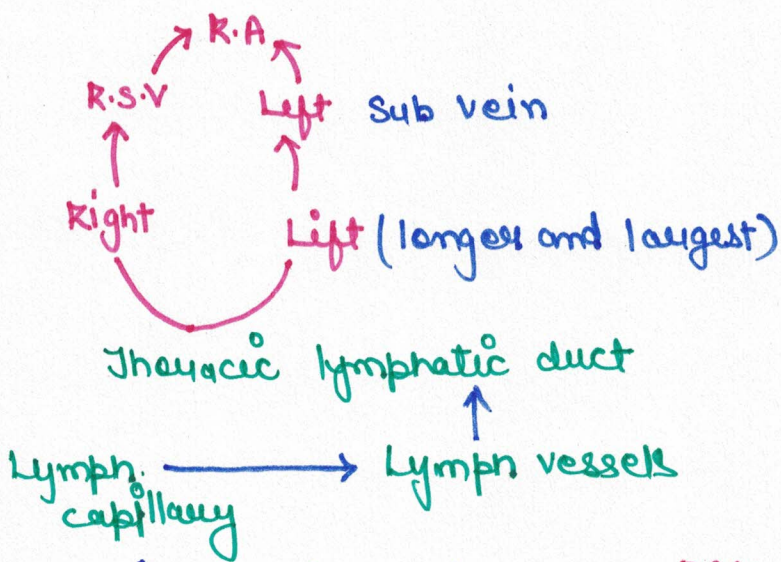 R.A
R.S.V Left Sub vein
Right Lift (longer and largest)
Thoracic lymphatic duct
Lymph. capillary Lymph vessels